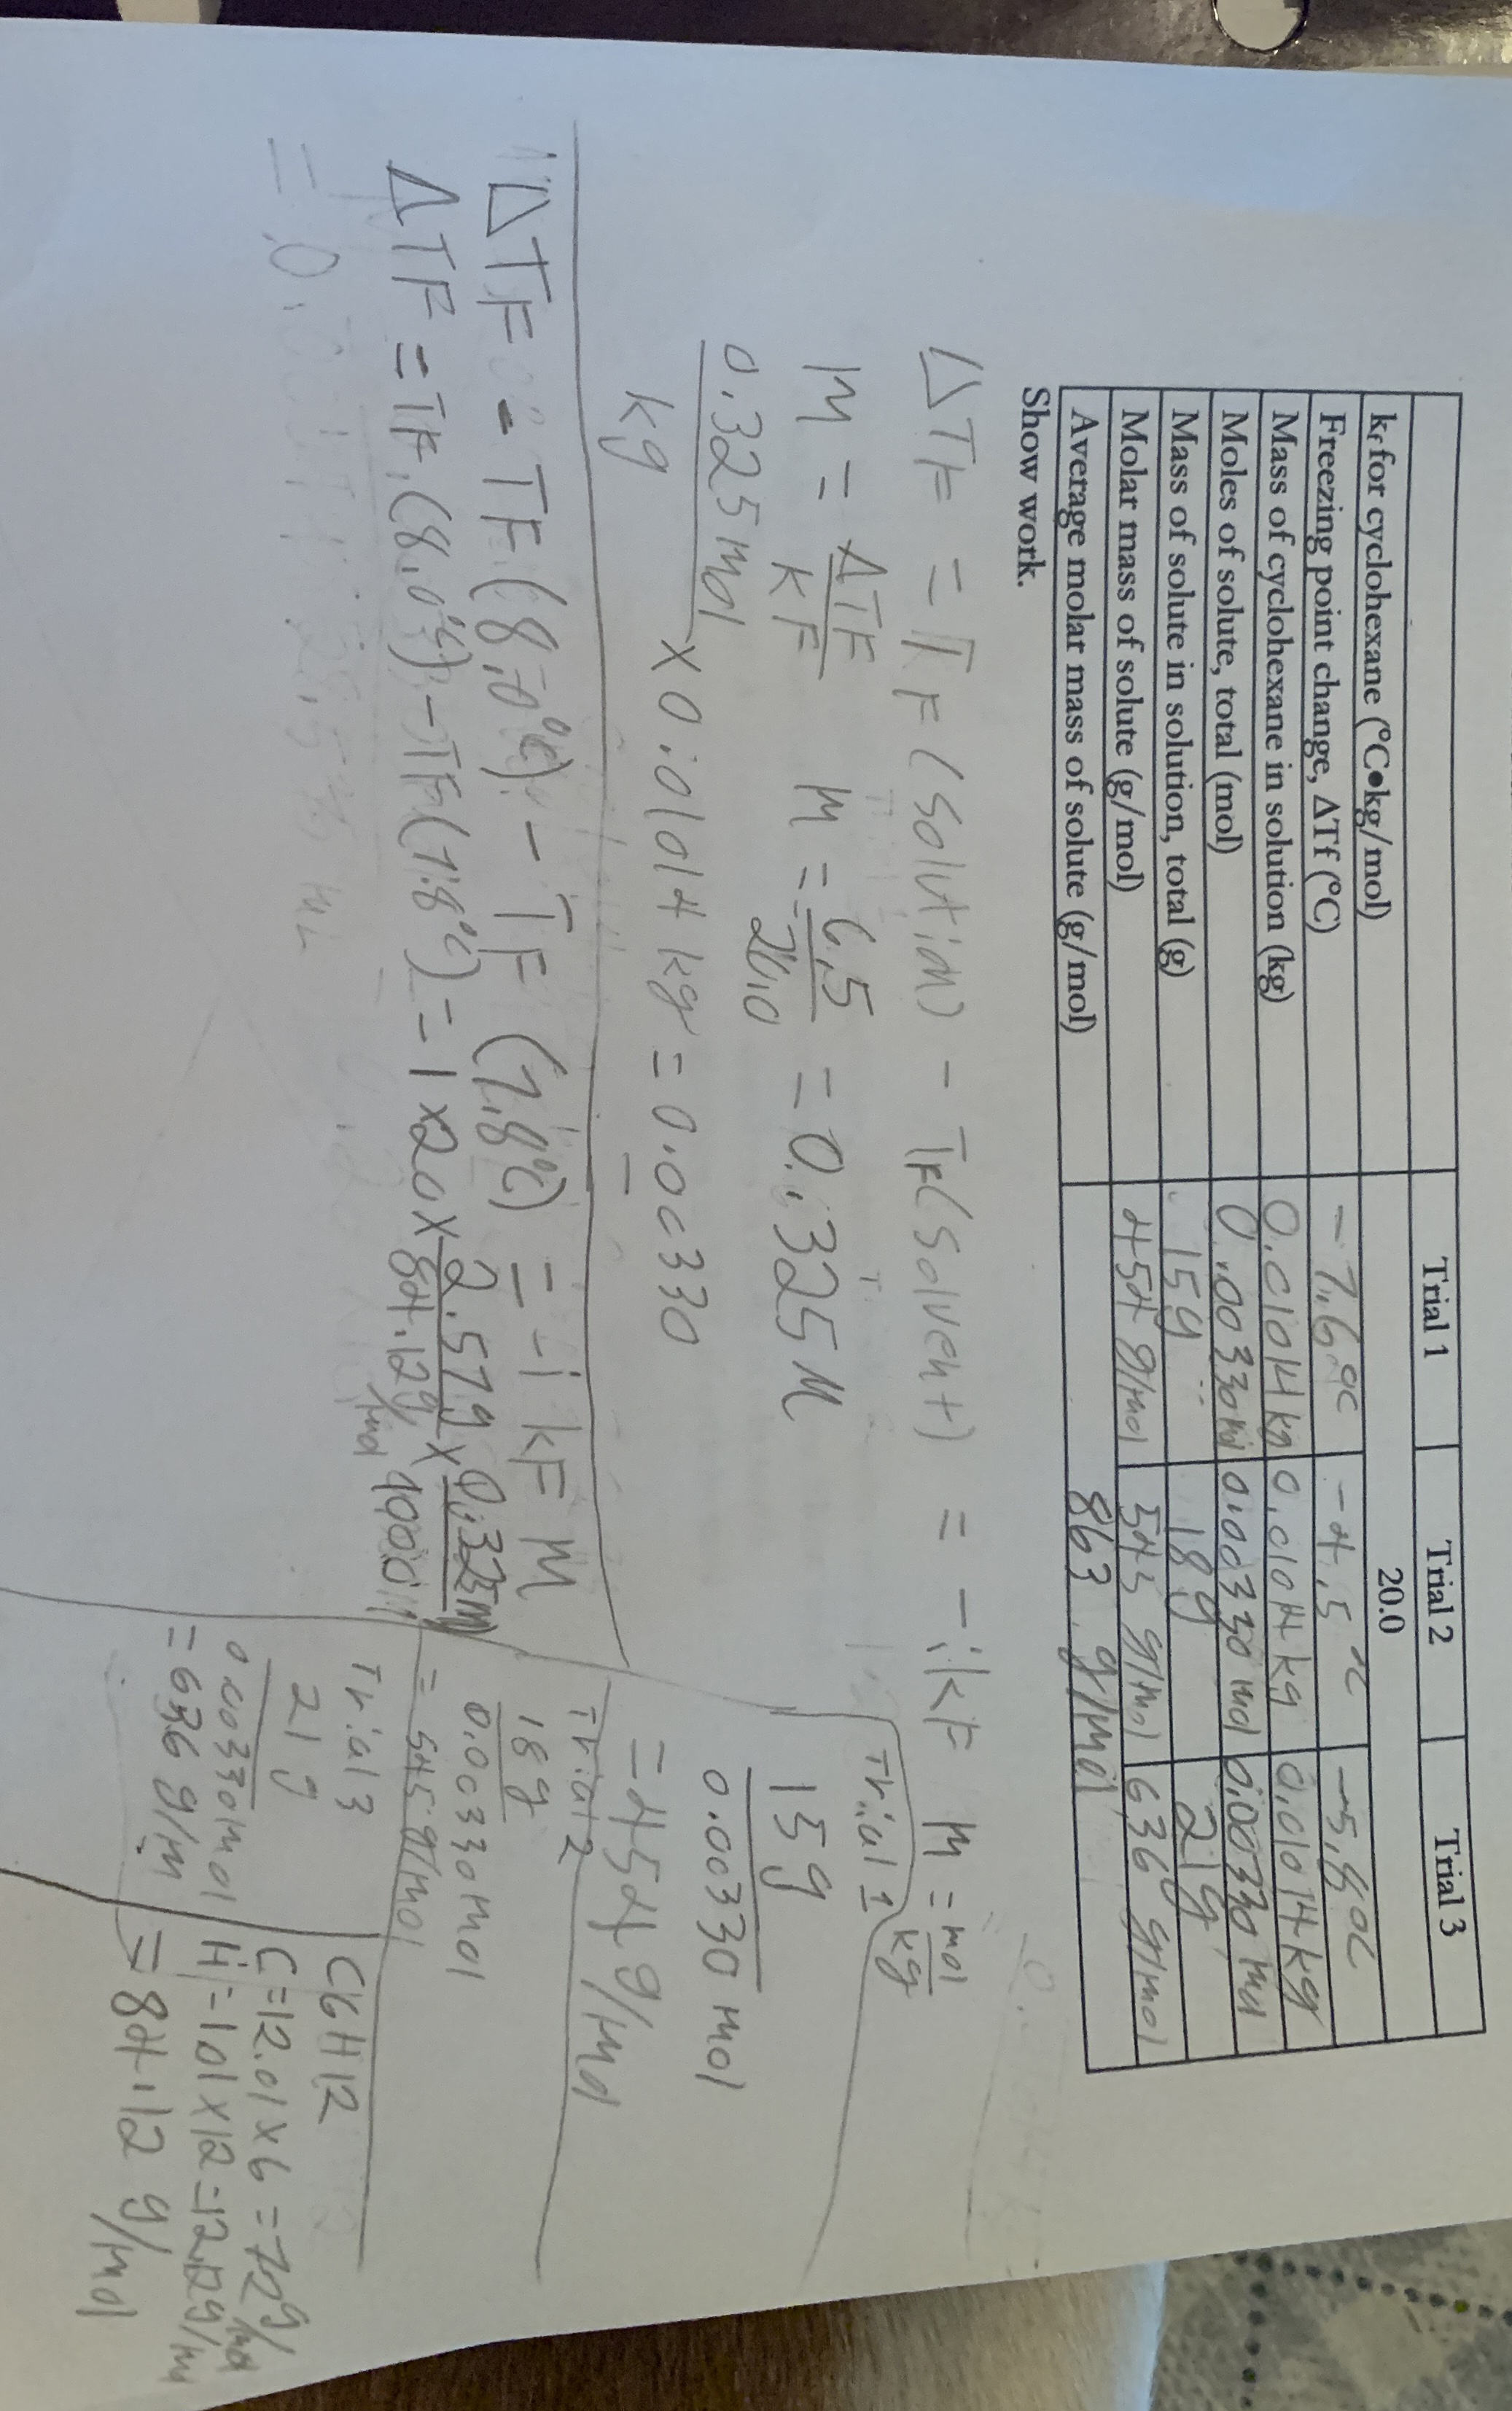 Trial 1 Trial 2 Trial 3
kf for cyclohexane (°C•kg/mol) 20.0
Freezing point change, ΔTf (°C) -7.6 °C -4.5 °C -5.8 °C
Mass of cyclohexane in solution (kg) 0.01014 kg 0.01014 kg 0.01014 kg
Moles of solute, total (mol) 0.00330 mol 0.00330 mol 0.00330 mol
Mass of solute in solution, total (g) .15g 18g 21g
Molar mass of solute (g/mol) 454 g/mol 545 g/mol 636 g/mol
Average molar mass of solute (g/mol) 863 g/mol
Show work.
ΔTF = TF (solution) - TF (solvent) = -ikF m m = mol/kg
m = ΔTF/KF m = 6.5/20.0 = 0.325 M
0.325 mol/kg × 0.01014 kg = 0.00330
ΔTF = TF (8.0°C) - TF (7.8°C) = -i kF m
ΔTF = TF (8.0°C) - TF (7.8°C) = -1 × 20 × 2.57g/84.12g/mol ×
Trial 1
15g
0.00330 mol
= 454 g/mol
Trial 2
18g
0.00330 mol
= 545 g/mol
Trial 3
21 g
0.00330 mol
= 636 g/m
C6H12
C = 12.01 × 6 = 72 g/mol
H = 1.01 × 12 = 12.12 g/m
= 84.12 g/mol